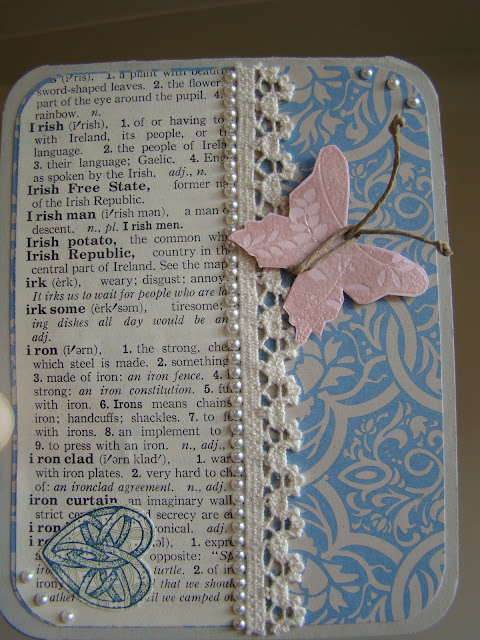 (ī′ris), 1. a plant with
sword-shaped leaves. 2. the flower.
part of the eye around the pupil. 4.
rainbow. n.
I rish (ī′rish), 1. of or having to
with Ireland, its people, or
language. 2. the people of
3. their language; Gaelic. 4.
as spoken by the Irish. adj., n.
Irish Free State, former
of the Irish Republic.
I rish man (ī′rish mən), a man
descent. n., pl. I rish men.
Irish potato, the common
Irish Republic, country in
central part of Ireland. See the map
irk (ėrk), weary; disgust; annoy
It irks us to wait for people who are
irk some (ėrk′səm), tiresome;
ing dishes all day would be an
adj.
i ron (ī′ərn), 1. the strong,
which steel is made. 2. something
3. made of iron: an iron fence. 4.
strong: an iron constitution. 5.
with iron. 6. Irons means chains
iron; handcuffs; shackles. 7. to
with irons. 8. an implement
9. to press with an iron. n., adj.,
i ron clad (ī′ərn klad′), 1.
with iron plates. 2. very hard to
of: an ironclad agreement. n., adj.
iron curtain, an imaginary wall
strict secrecy are
adj.
1.
opposite:
turtle. 2. of
irony that we
we camped